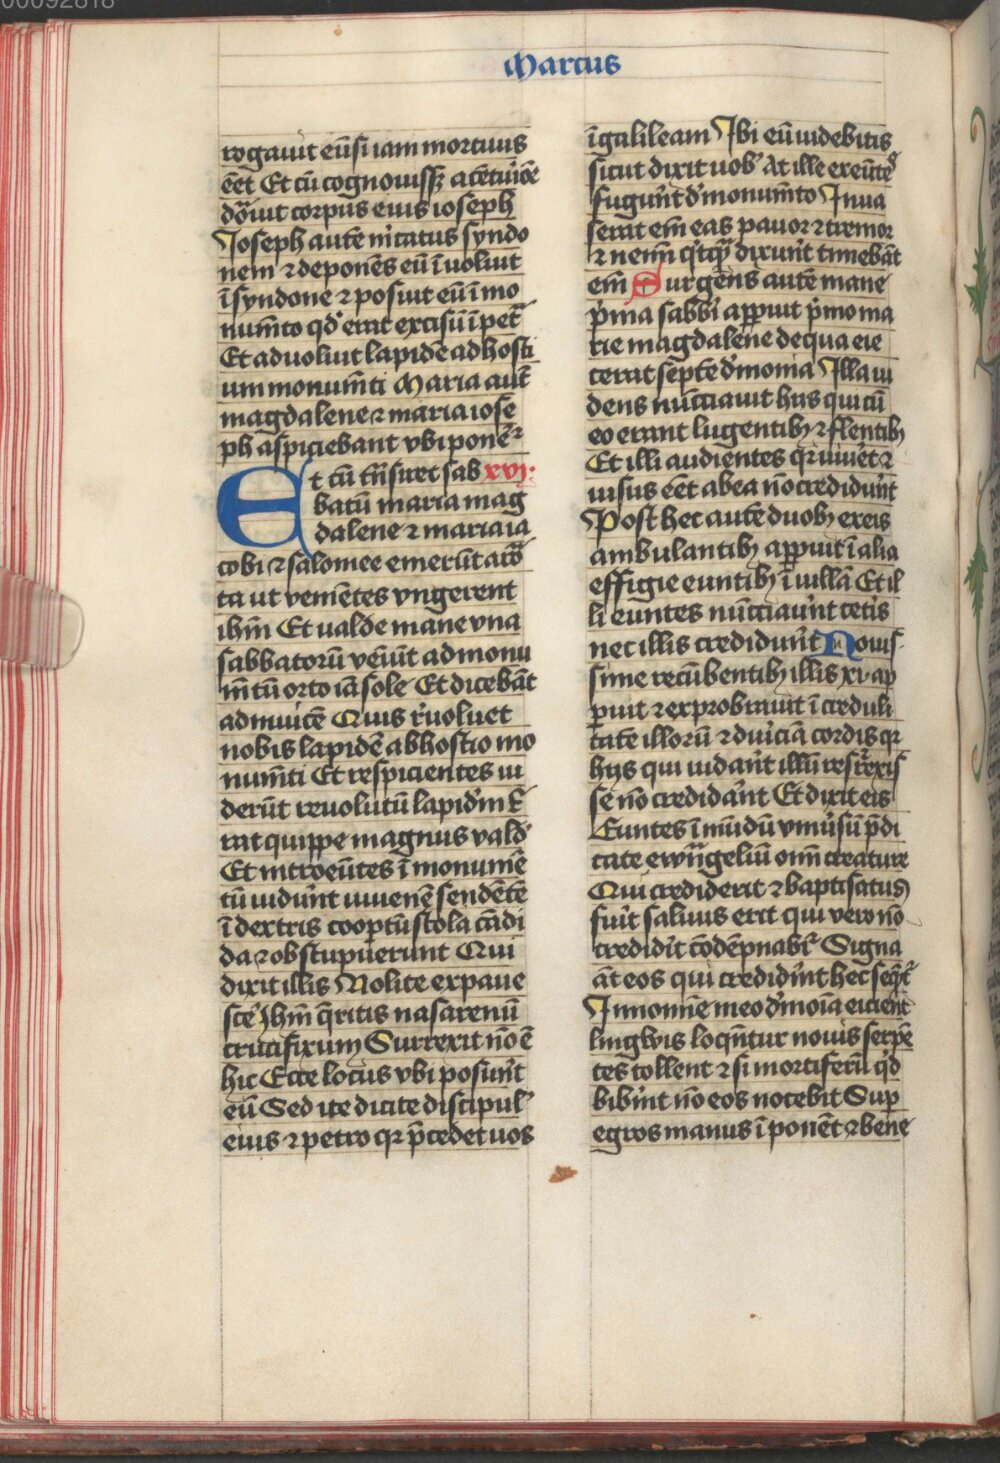 00092818
Marcus
rogauit eū si iam mortuus
eēt Et cū cognouiss; a cētuiōe
dōuit corpus eius ioseph
Joseph autē m̄catus syndo
nem ⁊ deponēs eū īuoluit
ī syndone ⁊ posuit eū ī mo
num̄to qd' erat excisū ī pet̄
Et aduoluit lapidē ad hosti
um monum̄ti Maria aut̄
magdalene ⁊ maria iose
ph aspiciebant vbi ponēr
Et cū t̄nsiret sab xvj
batū maria mag
dalene ⁊ maria ia
cobi ⁊ salomee emerūt aro
ta ut veniētes vngerent
ihm̄ Et ualde mane vna
sabbatorū veūit ad monu
m̄tū orto iā sole Et dicebāt
ad inuicē Quis r̄uoluet
nobis lapidē ab hostio mo
num̄ti Et respicientes ui
derūt reuolutū lapid'm E
rat quippe magnus vald'
Et introeūtes ī monumē
tū uid'unt iuuenē sendētē
ī dextris cooptū stola cādi
da ⁊ obstupuerunt Qui
dixit illis Nolite expaue
scē Jhm̄ q̄ritis nasarenū
crucifixum Surrexit nō ē
hic Ecce locus vbi posuīt
eū Sed ite dicite discipul'
eius ⁊ petro qr p̄cedet uos
ī galileam Jbi eū uidebitis
sicut dixit uob' At ille exeūtes
fugunt d' monum̄to Jnua
serat em̄ eas pauor ⁊ tremor
⁊ nem̄ q'cq̄ dixunt timebāt
em̄ Surgens autē mane
p̄ma sabbī appuit p̄mo ma
rie magdalene de qua eie
cerat septē d'monia Illa ui
dens nūciauit hiis qui cū
eo erant lugentib; ⁊ flentib;
Et illi audientes qr uiuēt ⁊
uisus eēt ab ea nō credidūt
Post hec autē duob; ex eis
ambulantib; appuit ī alia
effigie euntib; ī uillā Et il
li euntes nūciaunt cetis
nec illis credidunt Nouis
sime recūbentib; illis xi ap
puit ⁊ exprobrauit ī creduli
tatē illorū ⁊ duiciā cordis qr
hijs qui uidānt illū resrexis
se nō credidānt Et dixit eis
Euntes ī mūdū vniūsū p̄di
cate ewāgeliū om̄ creature
Qui crediderit ⁊ baptisatus
fuit saluus erit qui vero nō
credidit cōdēpnabr Signa
āt eos qui credidīnt hec seq̄r
In nomīe meo d'moīa eicient
lingwis loqn̄tur nouis serpē
tes tollent ⁊ si mortiferū q'd
bibīnt nō eos nocebit Sup
egros manus ī ponēt ⁊ bene